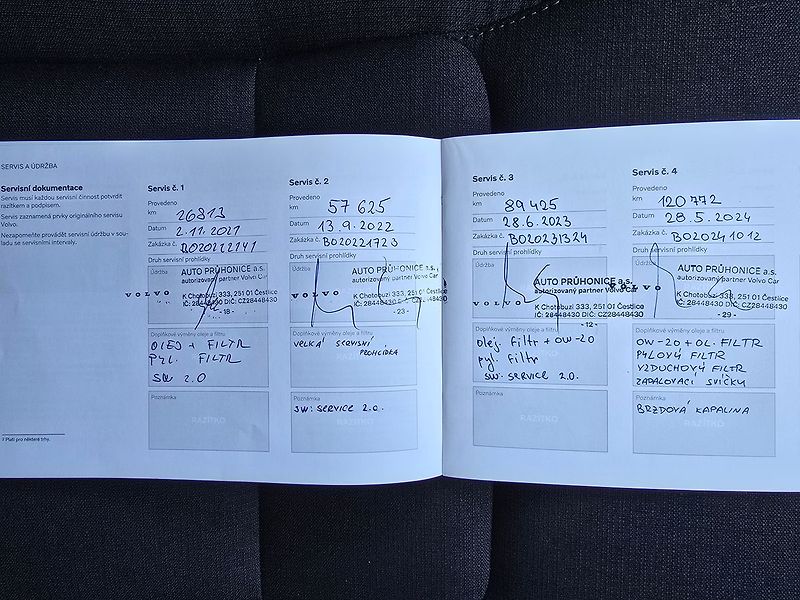 SERVIS A ÚDRŽBA
Servisní dokumentace
Servis musí každou servisní činnost potvrdit
razítkem a podpisem.
Servis zaznamená prvky originálního servisu
Volvo.
Nezapomeňte provádět servisní údržbu v sou-
ladu se servisními intervaly.
1 Platí pro některé trhy.
Servis č. 1
Provedeno
km 26813
Datum 2.11.2021
Zakázka č. BO20222141
Druh servisní prohlídky
Údržba
AUTO PRŮHONICE a.s.
autorizovaný partner Volvo Car
VOLVO
K Chotobuzi 333, 251 01 Čestlice
IČ: 28448430 DIČ: CZ28448430
- 18 -
Doplňkové výměny oleje a filtru
OLEJ + FILTR
PYL. FILTR
SW 2.0
Poznámka
RAZÍTKO
Servis č. 2
Provedeno
km 57 625
Datum 13.9.2022
Zakázka č. BO20221723
Druh servisní prohlídky
Údržba
AUTO PRŮHONICE a.s.
autorizovaný partner Volvo Car
VOLVO
K Chotobuzi 333, 251 01 Čestlice
IČ: 28448430 DIČ: CZ28448430
- 23 -
Doplňkové výměny oleje a filtru
VELKÁ SERVISNÍ
PROHLÍDKA
Poznámka
SW: SERVICE 2.0.
RAZÍTKO
Servis č. 3
Provedeno
km 89 425
Datum 28.6.2023
Zakázka č. BO20231324
Druh servisní prohlídky
Údržba
AUTO PRŮHONICE a.s.
autorizovaný partner Volvo Car
VOLVO
K Chotobuzi 333, 251 01 Čestlice
IČ: 28448430 DIČ: CZ28448430
- 12 -
Doplňkové výměny oleje a filtru
olej. filtr + OW-20
pyl. filtr
SW. SERVICE 2.0.
Poznámka
RAZÍTKO
Servis č. 4
Provedeno
km 120 772
Datum 28.5.2024
Zakázka č. BO20241012
Druh servisní prohlídky
Údržba
AUTO PRŮHONICE a.s.
autorizovaný partner Volvo Car
VOLVO
K Chotobuzi 333, 251 01 Čestlice
IČ: 28448430 DIČ: CZ28448430
- 29 -
Doplňkové výměny oleje a filtru
OW-20 + OL. FILTR
PYLOVÝ FILTR
VZDUCHOVÝ FILTR
ZAPALOVACÍ SVÍČKY
Poznámka
BRZDOVÁ KAPALINA
RAZÍTKO